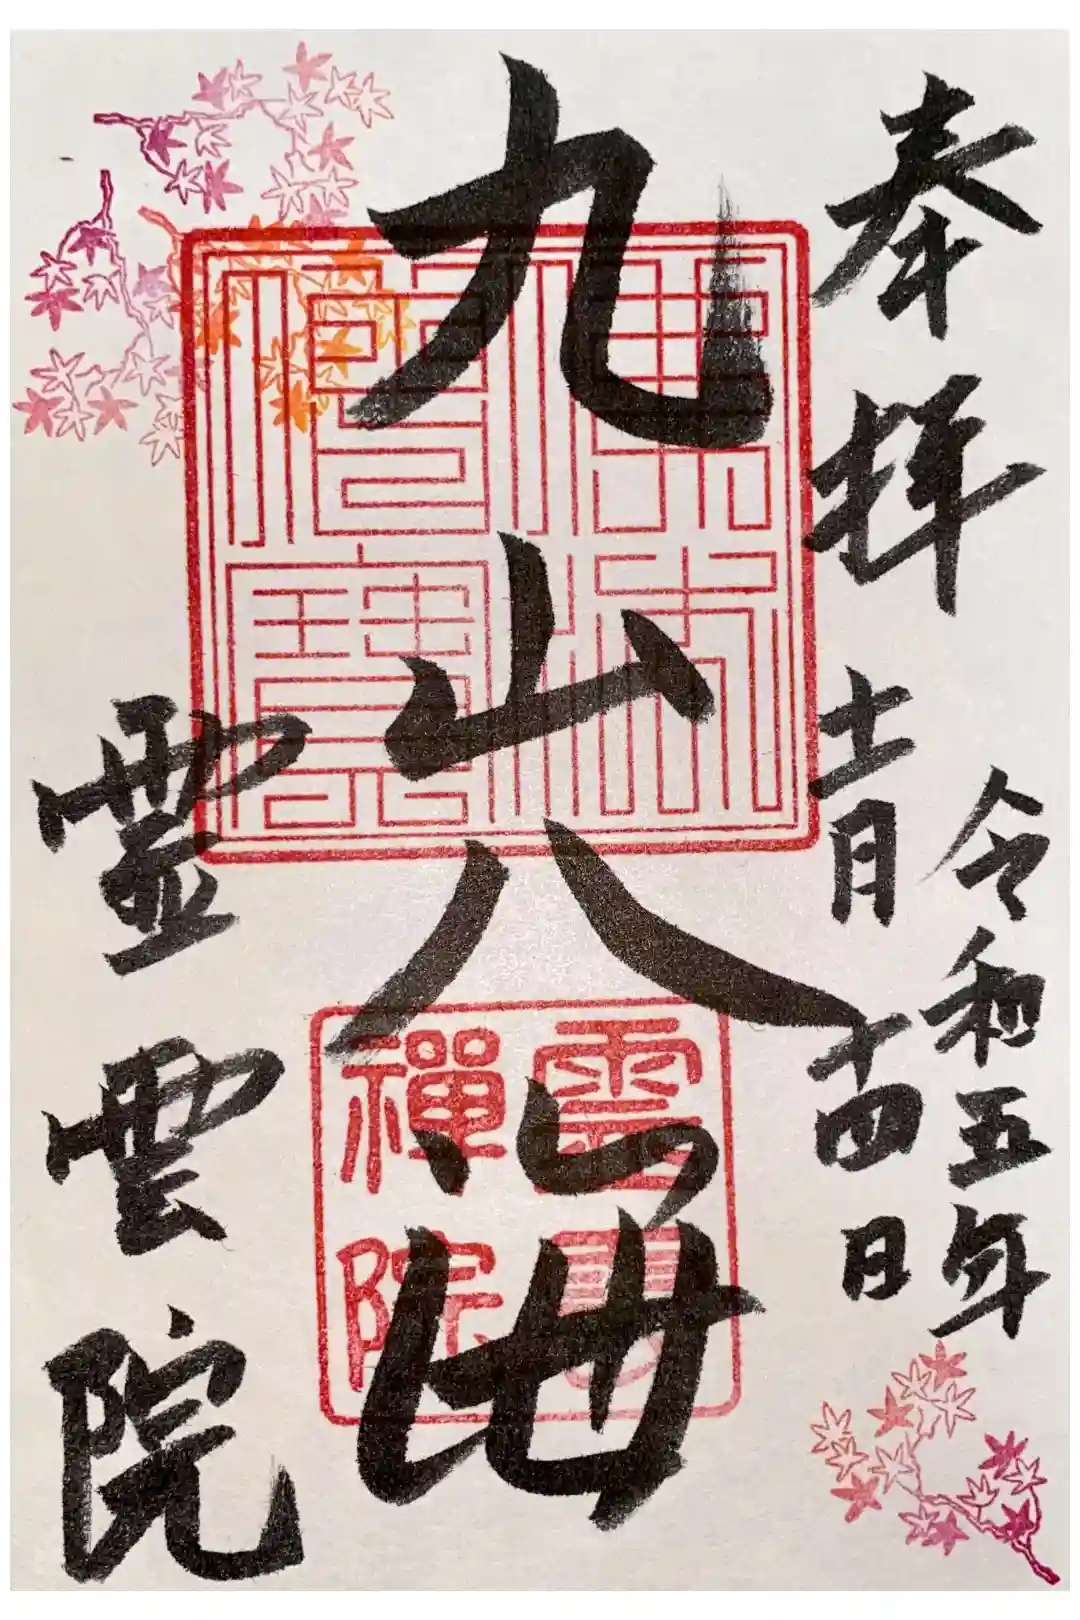 奉拝
令和五年
十一月十四日
九山八海
霊雲院
僧寶
禪院